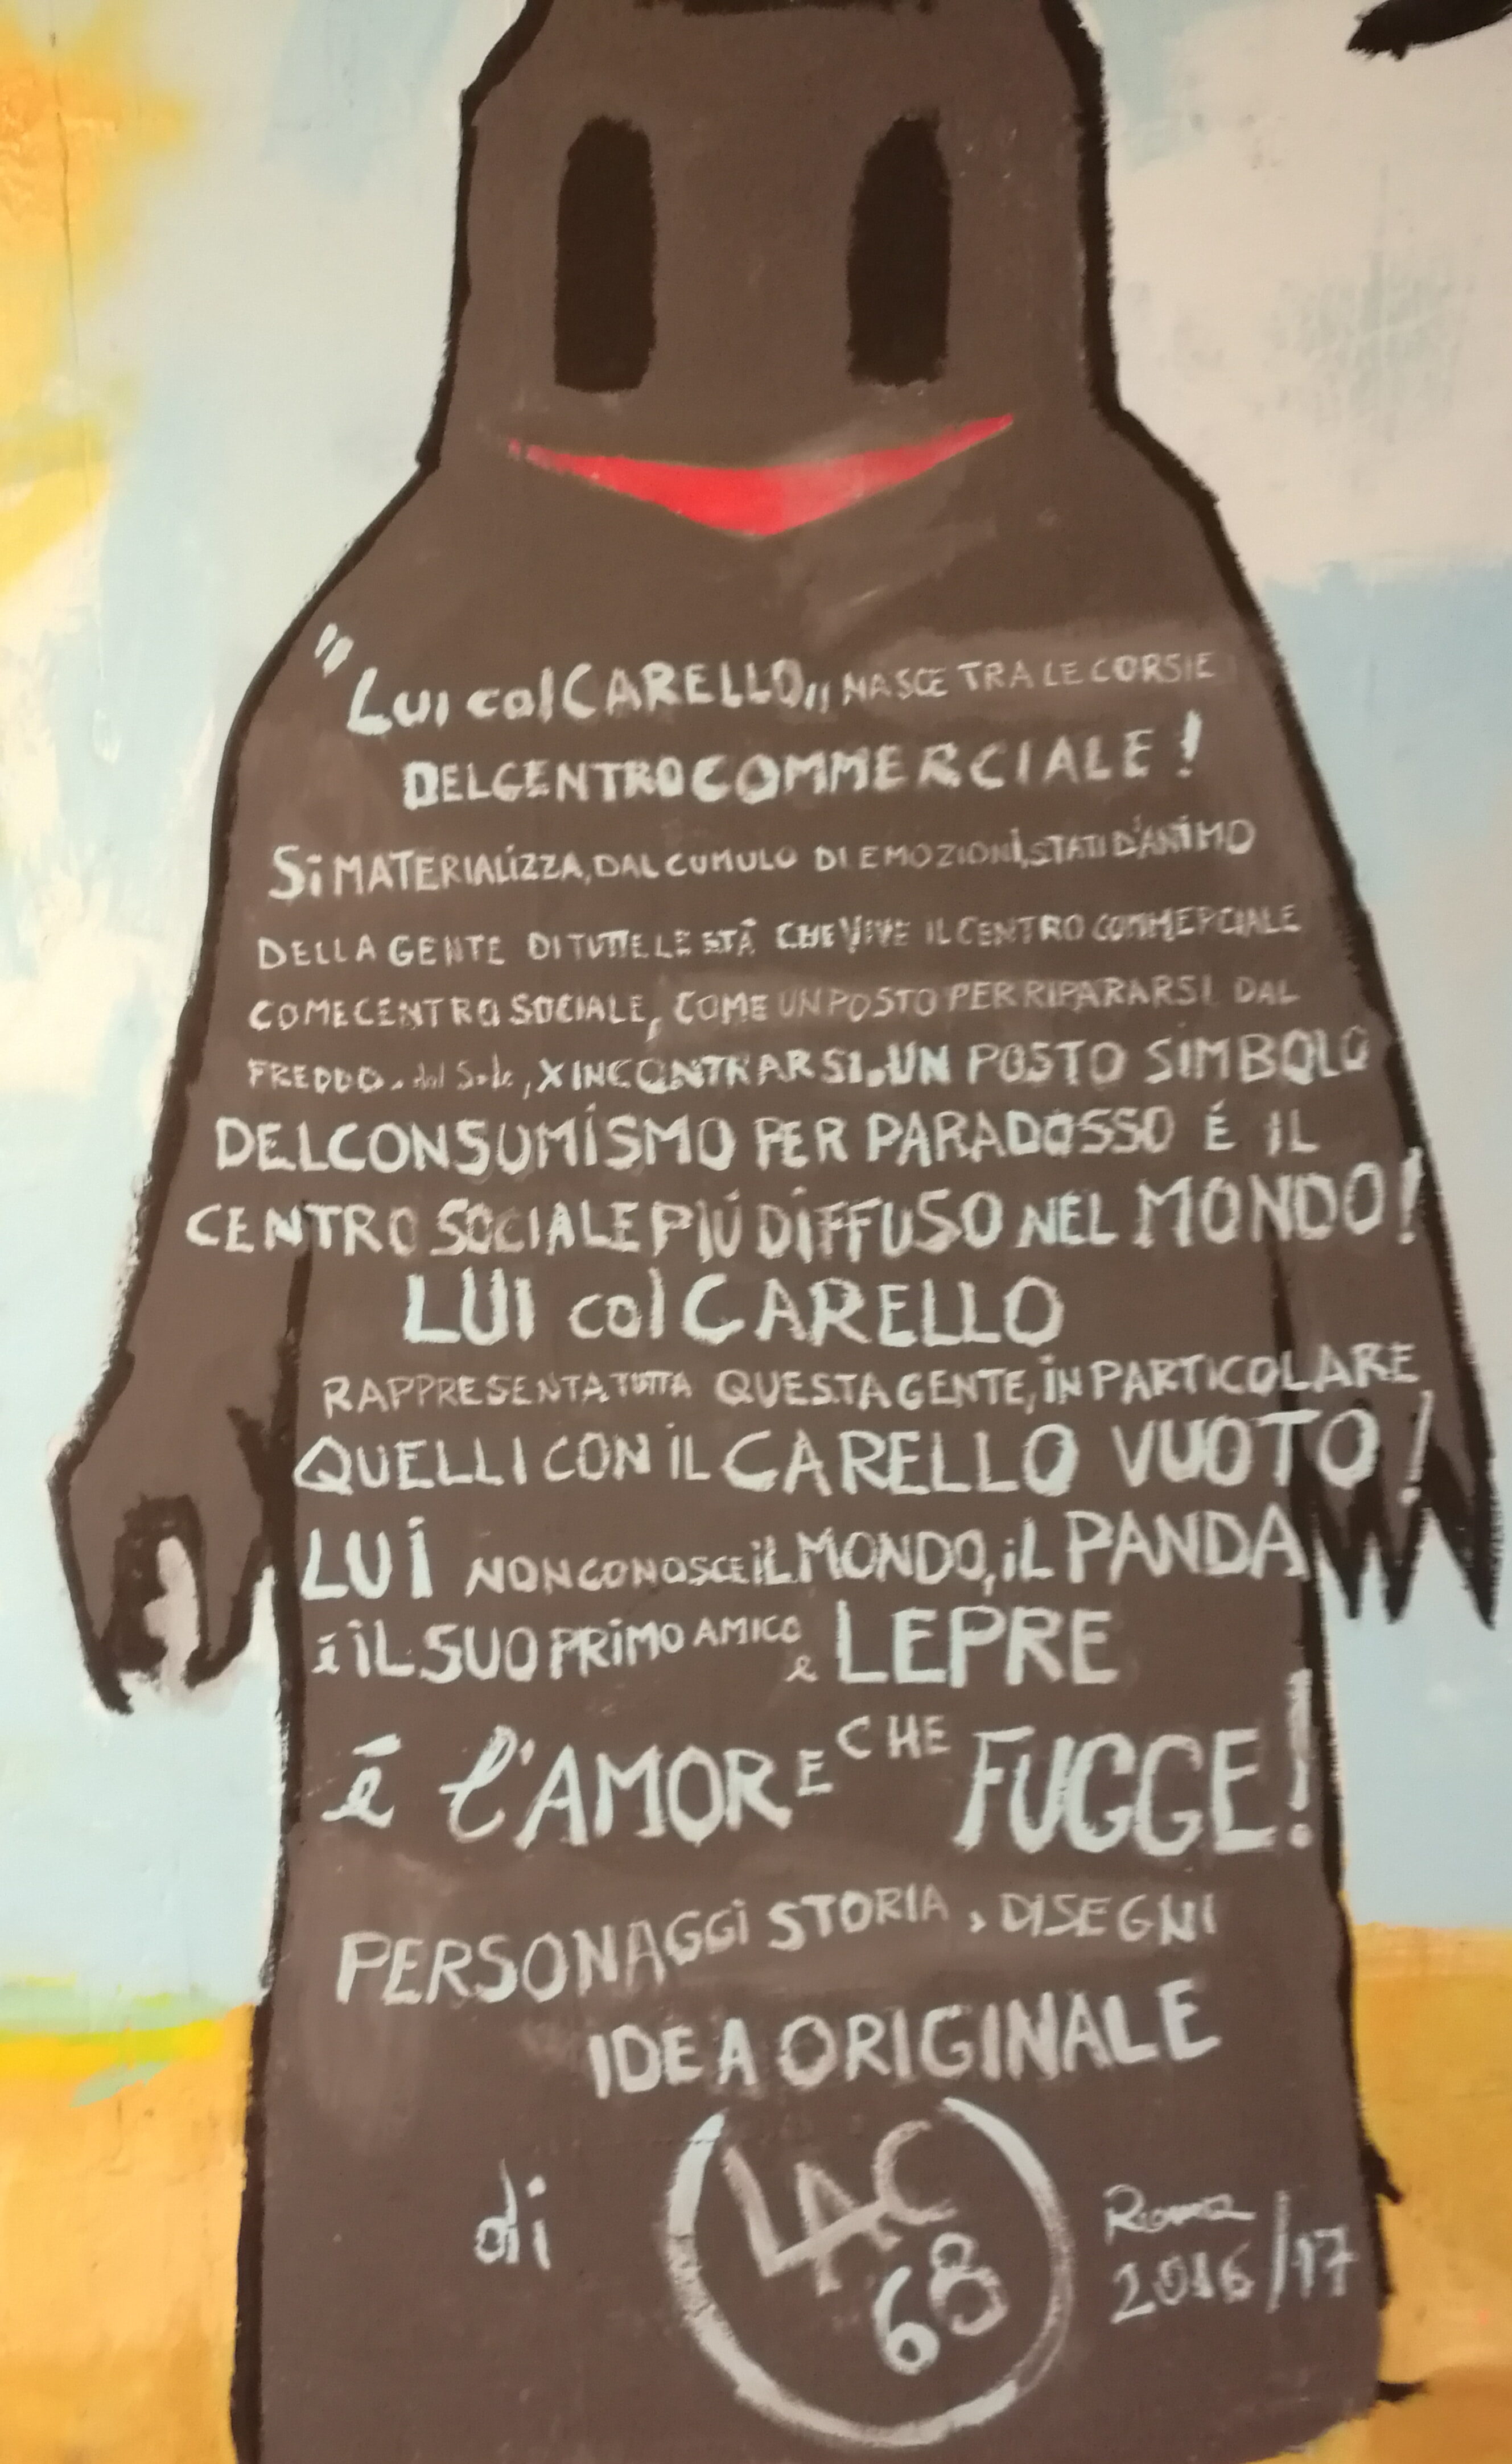 "Lui col CARELLO,, NASCE TRA LE CORSIE
DEL CENTRO COMMERCIALE !
Si MATERIALIZZA, DAL CUMULO DI EMOZIONI, STATI D'ANIMO
DELLA GENTE DI TUTTE LE ETÁ CHE VIVE IL CENTRO COMMERCIALE
COME CENTRO SOCIALE, COME UN POSTO PER RIPARARSI DAL
FREDDO. dal Sole, X INCONTRARSI. UN POSTO SIMBOLO
DEL CONSUMISMO PER PARADOSSO É IL
CENTRO SOCIALE PIÚ DIFFUSO NEL MONDO!
LUI col CARELLO
RAPPRESENTA TUTTA QUESTA GENTE, IN PARTICOLARE
QUELLI CON IL CARELLO VUOTO !
LUI NON CONOSCE IL MONDO, iL PANDA
é iL SUO PRIMO AMICO e LEPRE
é l'AMORE CHE FUGGE!
PERSONAGGI STORIA, DISEGNI
IDEA ORIGINALE
di LAC
68
Roma
2016/17